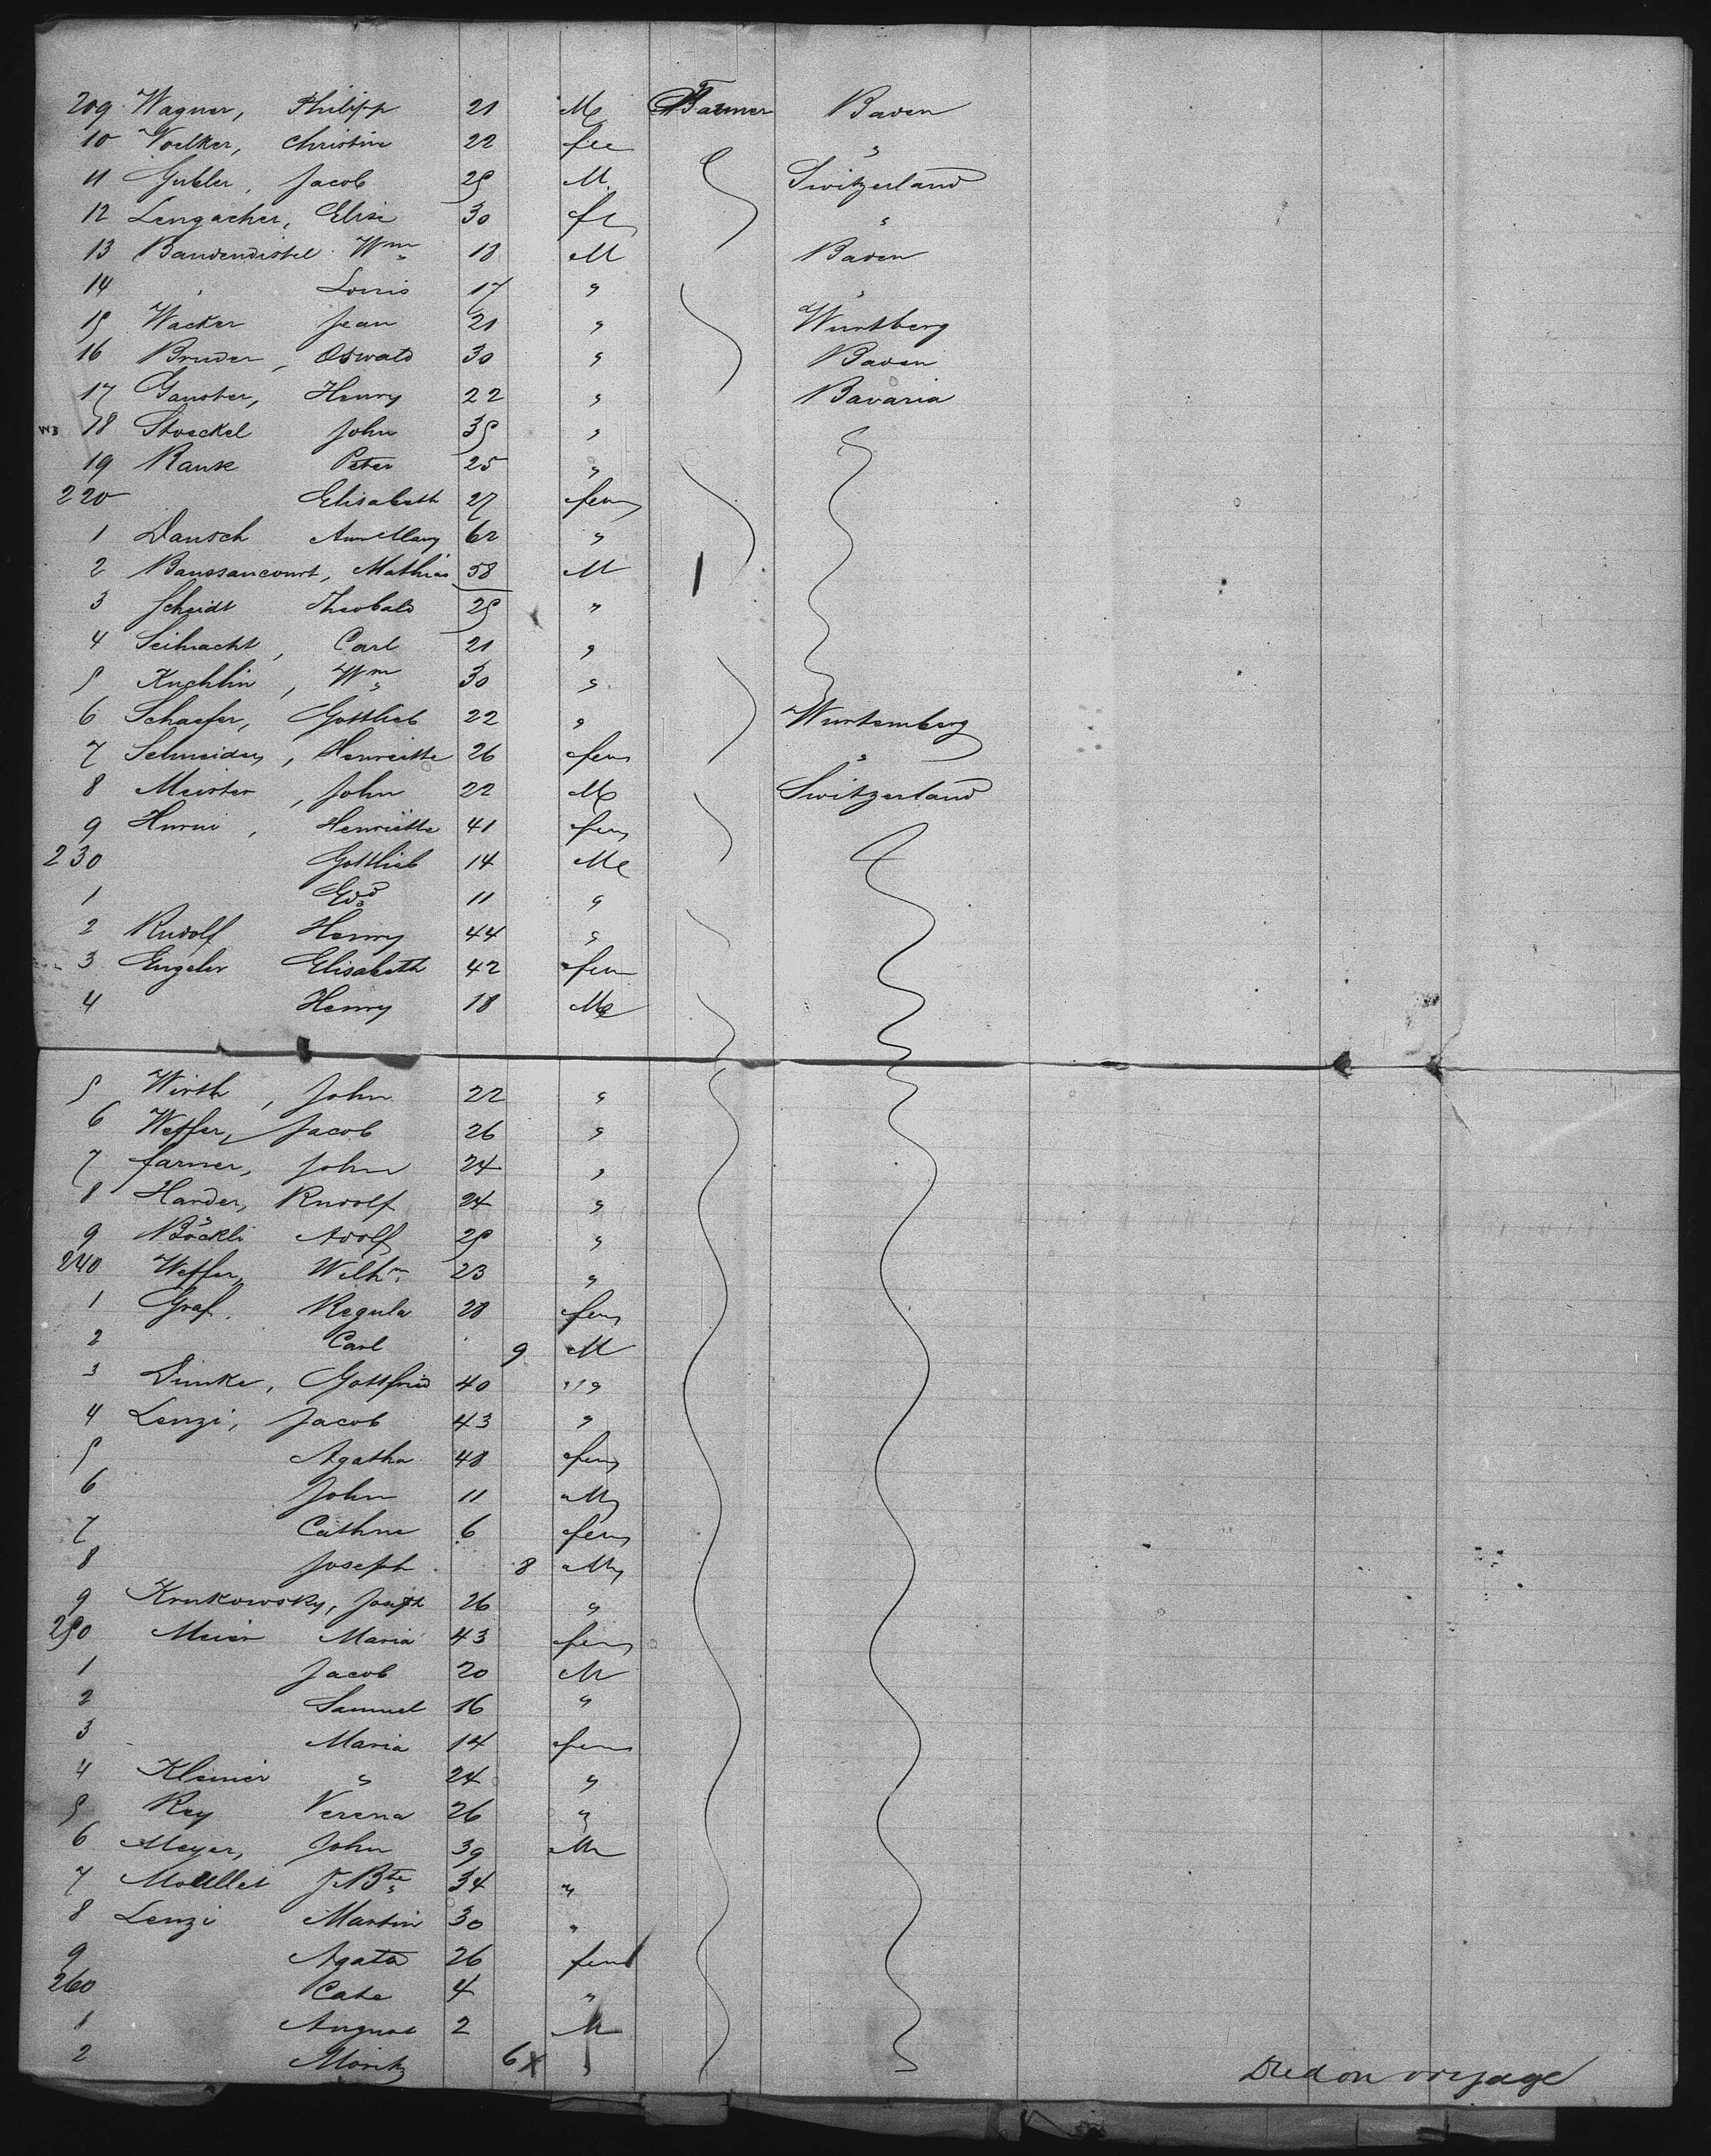 209 Wagner, Philipp 21 M Farmer Baden
10 Voelker, Christine 22 fem "
11 Gubler, Jacob 25 M. Switzerland
12 Lengacher, Elise 30 f "
13 Bandendistel Wm 18 M Baden
14 " Louis 17 " "
15 Wacker Jean 21 " Wurtberg
16 Bruder, Oswald 30 " Baden
17 Ganster, Henry 22 " Bavaria
18 Stoeckel John 35 "
19 Rausk Peter 25 "
220 Elisabeth 27 fem
1 Dausch Ann Mary 62 "
2 Banssancourt, Mathias 58 M
3 Scheidt Theobald 25 "
4 Seihacht, Carl 21 "
5 Kuchlin, Wm 30 "
6 Schaefer, Gottlieb 22 " Wurtemberg
7 Schneider, Henriette 26 fem "
8 Meister, John 22 M Switzerland
9 Hurni, Henriette 41 fem
230 Gottlieb 14 M
1 Edd 11 "
2 Rudolf Henry 44 "
3 Engeler Elisabeth 42 fem
4 Henry 18 M
5 Wirth, John 22 "
6 Weffer, Jacob 26 "
7 Farner, John 24 "
8 Harder, Rudolf 24 "
9 Böckli Adolf 25 "
240 Weffer, Wilhm 23 "
1 Graf. Regula 28 fem
2 Carl 9 M
3 Dunke, Gottfried 40 "
4 Lenzi, Jacob 43 "
5 Agatha 48 fem
6 John 11 M
7 Cathne 6 fem
8 Joseph 8 M
9 Krukowsky, Joseph 26 "
250 Meier Maria 43 fem
1 Jacob 20 M
2 Samuel 16 "
3 Maria 14 fem
4 Kleiner " 24 "
5 Rey Verena 26 "
6 Meyer, John 39 M
7 Mollet J. Bte 34 "
8 Lenzi Martin 30 "
9 Agata 26 fem
260 Cate 4 "
1 August 2 M
2 Moritz 6 X " Died on voyage